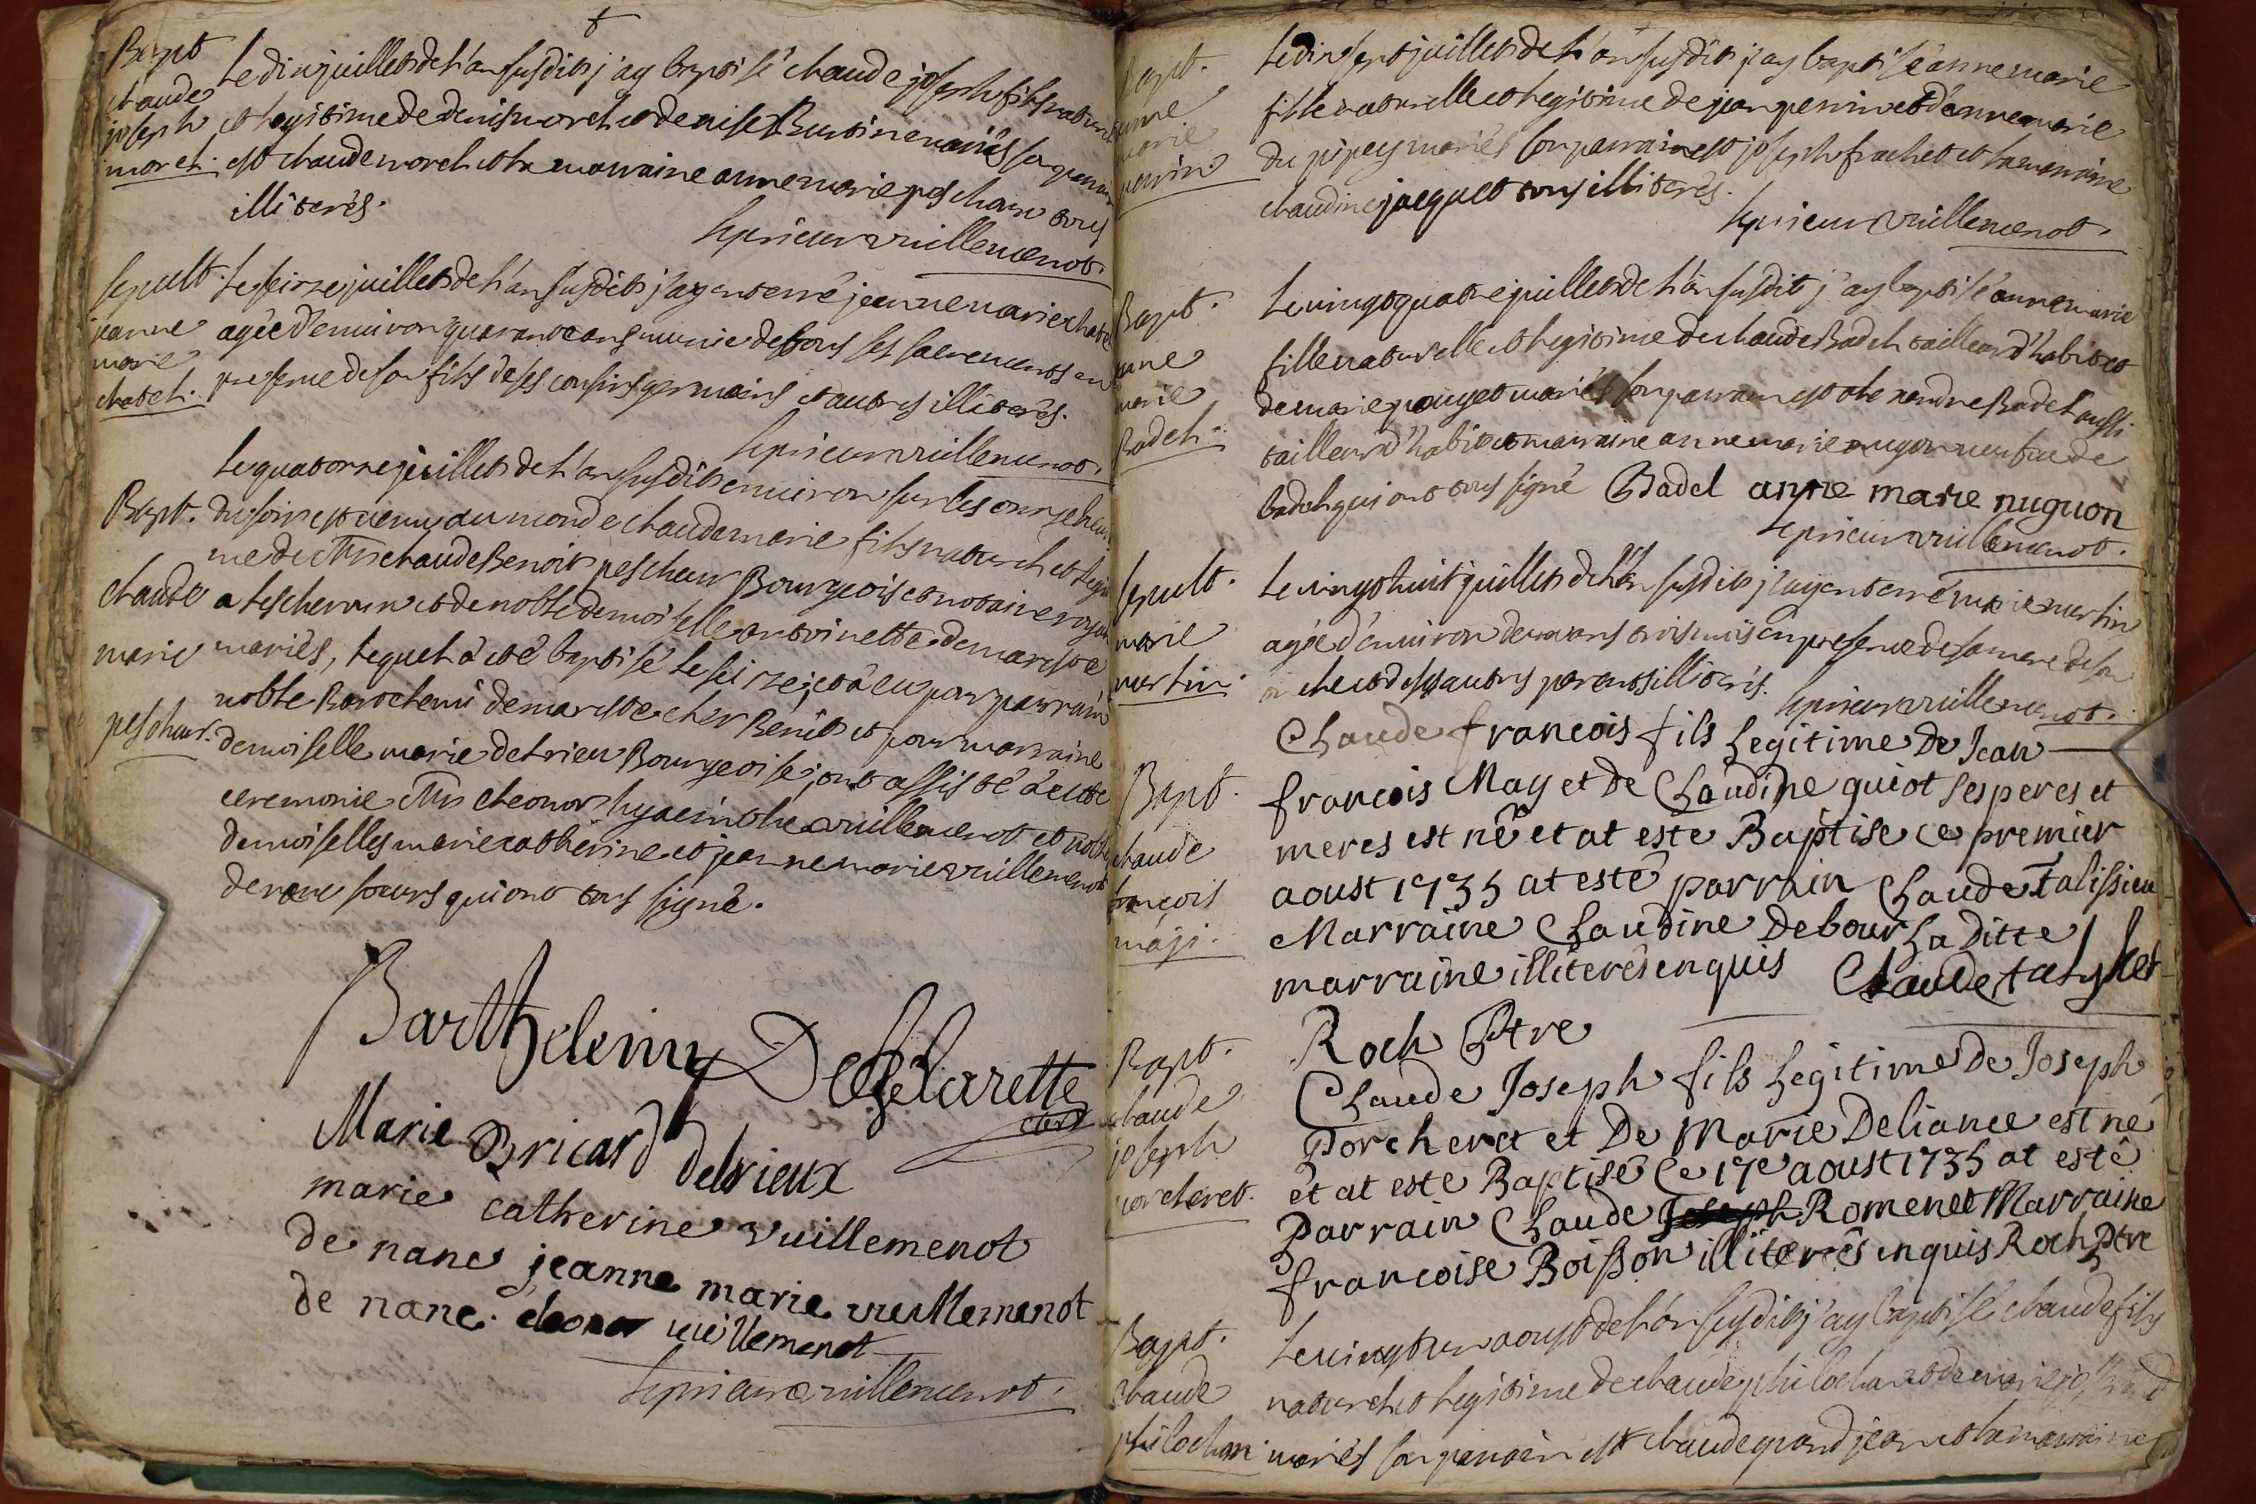 Bapt
claude
joseph
morel.
Le dix juillet de l'an susdit j'ay baptisé claude joseph fils naturel
et legitime de denis morel et denise Buvoine mariés sa parrain
est claude morel et la marraine anne marie peschon tous
illiterés.
le prieur vuillemenot.
sepult.
jeanne
marie
chatel.
Le seize juillet de l'an susdit j'ay enterré jeanne marie chatel
agée d'environ quarante ans munie de tous ses sacrements en
presence de son fils de ses cousins germains et autres illiterés.
le prieur vuillemenot.
Bapt.
claude
marie
pescheur.
Le quatorze juillet de l'an susdit environ sur les onze heures
du soir est venu au monde claude marie fils naturel et legiti
me de Mr claude Benoit pescheur Bourgeois et notaire royal
a lescheroux et de noble demoiselle antoinette demareste
mariés, lequel a eté baptisé le seize, et a eu pour parrain
noble Barthelemi demareste cler Benit et pour marraine
demoiselle marie delrieu Bourgeoise, ont assisté a cette
ceremonie Mr eleonor hyacinthe vuillemenot et nobles
demoiselles marie catherine et jeanne marie vuillemenot
de nanc soeurs qui ont tous signé.
Barthelemy Deslarette
clerc
Marie Bricard delrieux
marie catherine vuillemenot
de nanc jeanne marie vuillemenot
de nanc. eleonor vuillemenot
le prieur vuillemenot.
Bapt.
anne
marie
perrin
Le dix sept juillet de l'an susdit j'ay baptisé anne marie
fille naturelle et legitime de jean perrin et d'anne marie
du pipey mariés son parrain est joseph frachet et la marraine
claudine jacquet tous illiterés.
le prieur vuillemenot.
Bapt.
anne
marie
Badel.
Le vingt quatre juillet de l'an susdit j'ay baptisé anne marie
fille naturelle et legitime de claude Badel tailleur d'habit et
de marie pouget mariés son parrain est alexandre Badel aussi
tailleur d'habit et marraine anne marie nugon veufve de
badel qui ont tous signé Badel anne marie nuguon
le prieur vuillemenot.
sepult.
marie
martin.
Le vingt huit juillet de l'an susdit j'ay enterré marie martin
agée d'environ deux ans trois mois en presence de sa mere de son
oncle et de ses autres parents illiterés.
le prieur vuillemenot.
Bapt.
claude
françois
maÿ.
Claude francois fils Legitime De Jean
francois May et de Claudine guiot ses peres et
meres est né et at esté Baptise ce premier
aoust 1735 at esté parrain Claude Talissieu
Marraine Claudine Debour La Ditte
marraine illiterés enquis Claude talyket
Roch Ptre
Bapt.
claude
joseph
porcheret.
Claude Joseph fils Legitime De Joseph
Porcheret et De Marie Deliance est né
et at esté Baptisé Ce 17e aoust 1735 at esté
Parrain Claude Joseph Romenet Marraine
francoise Boisson illiterés enquis Roch Ptre
Bapt.
claude
philochan.
Le vingt un aoust de l'an susdit j'ay baptisé claude fils
naturel et legitime de claude philochan et de marie josserand
mariés son parrain est claude grand jean et la marraine